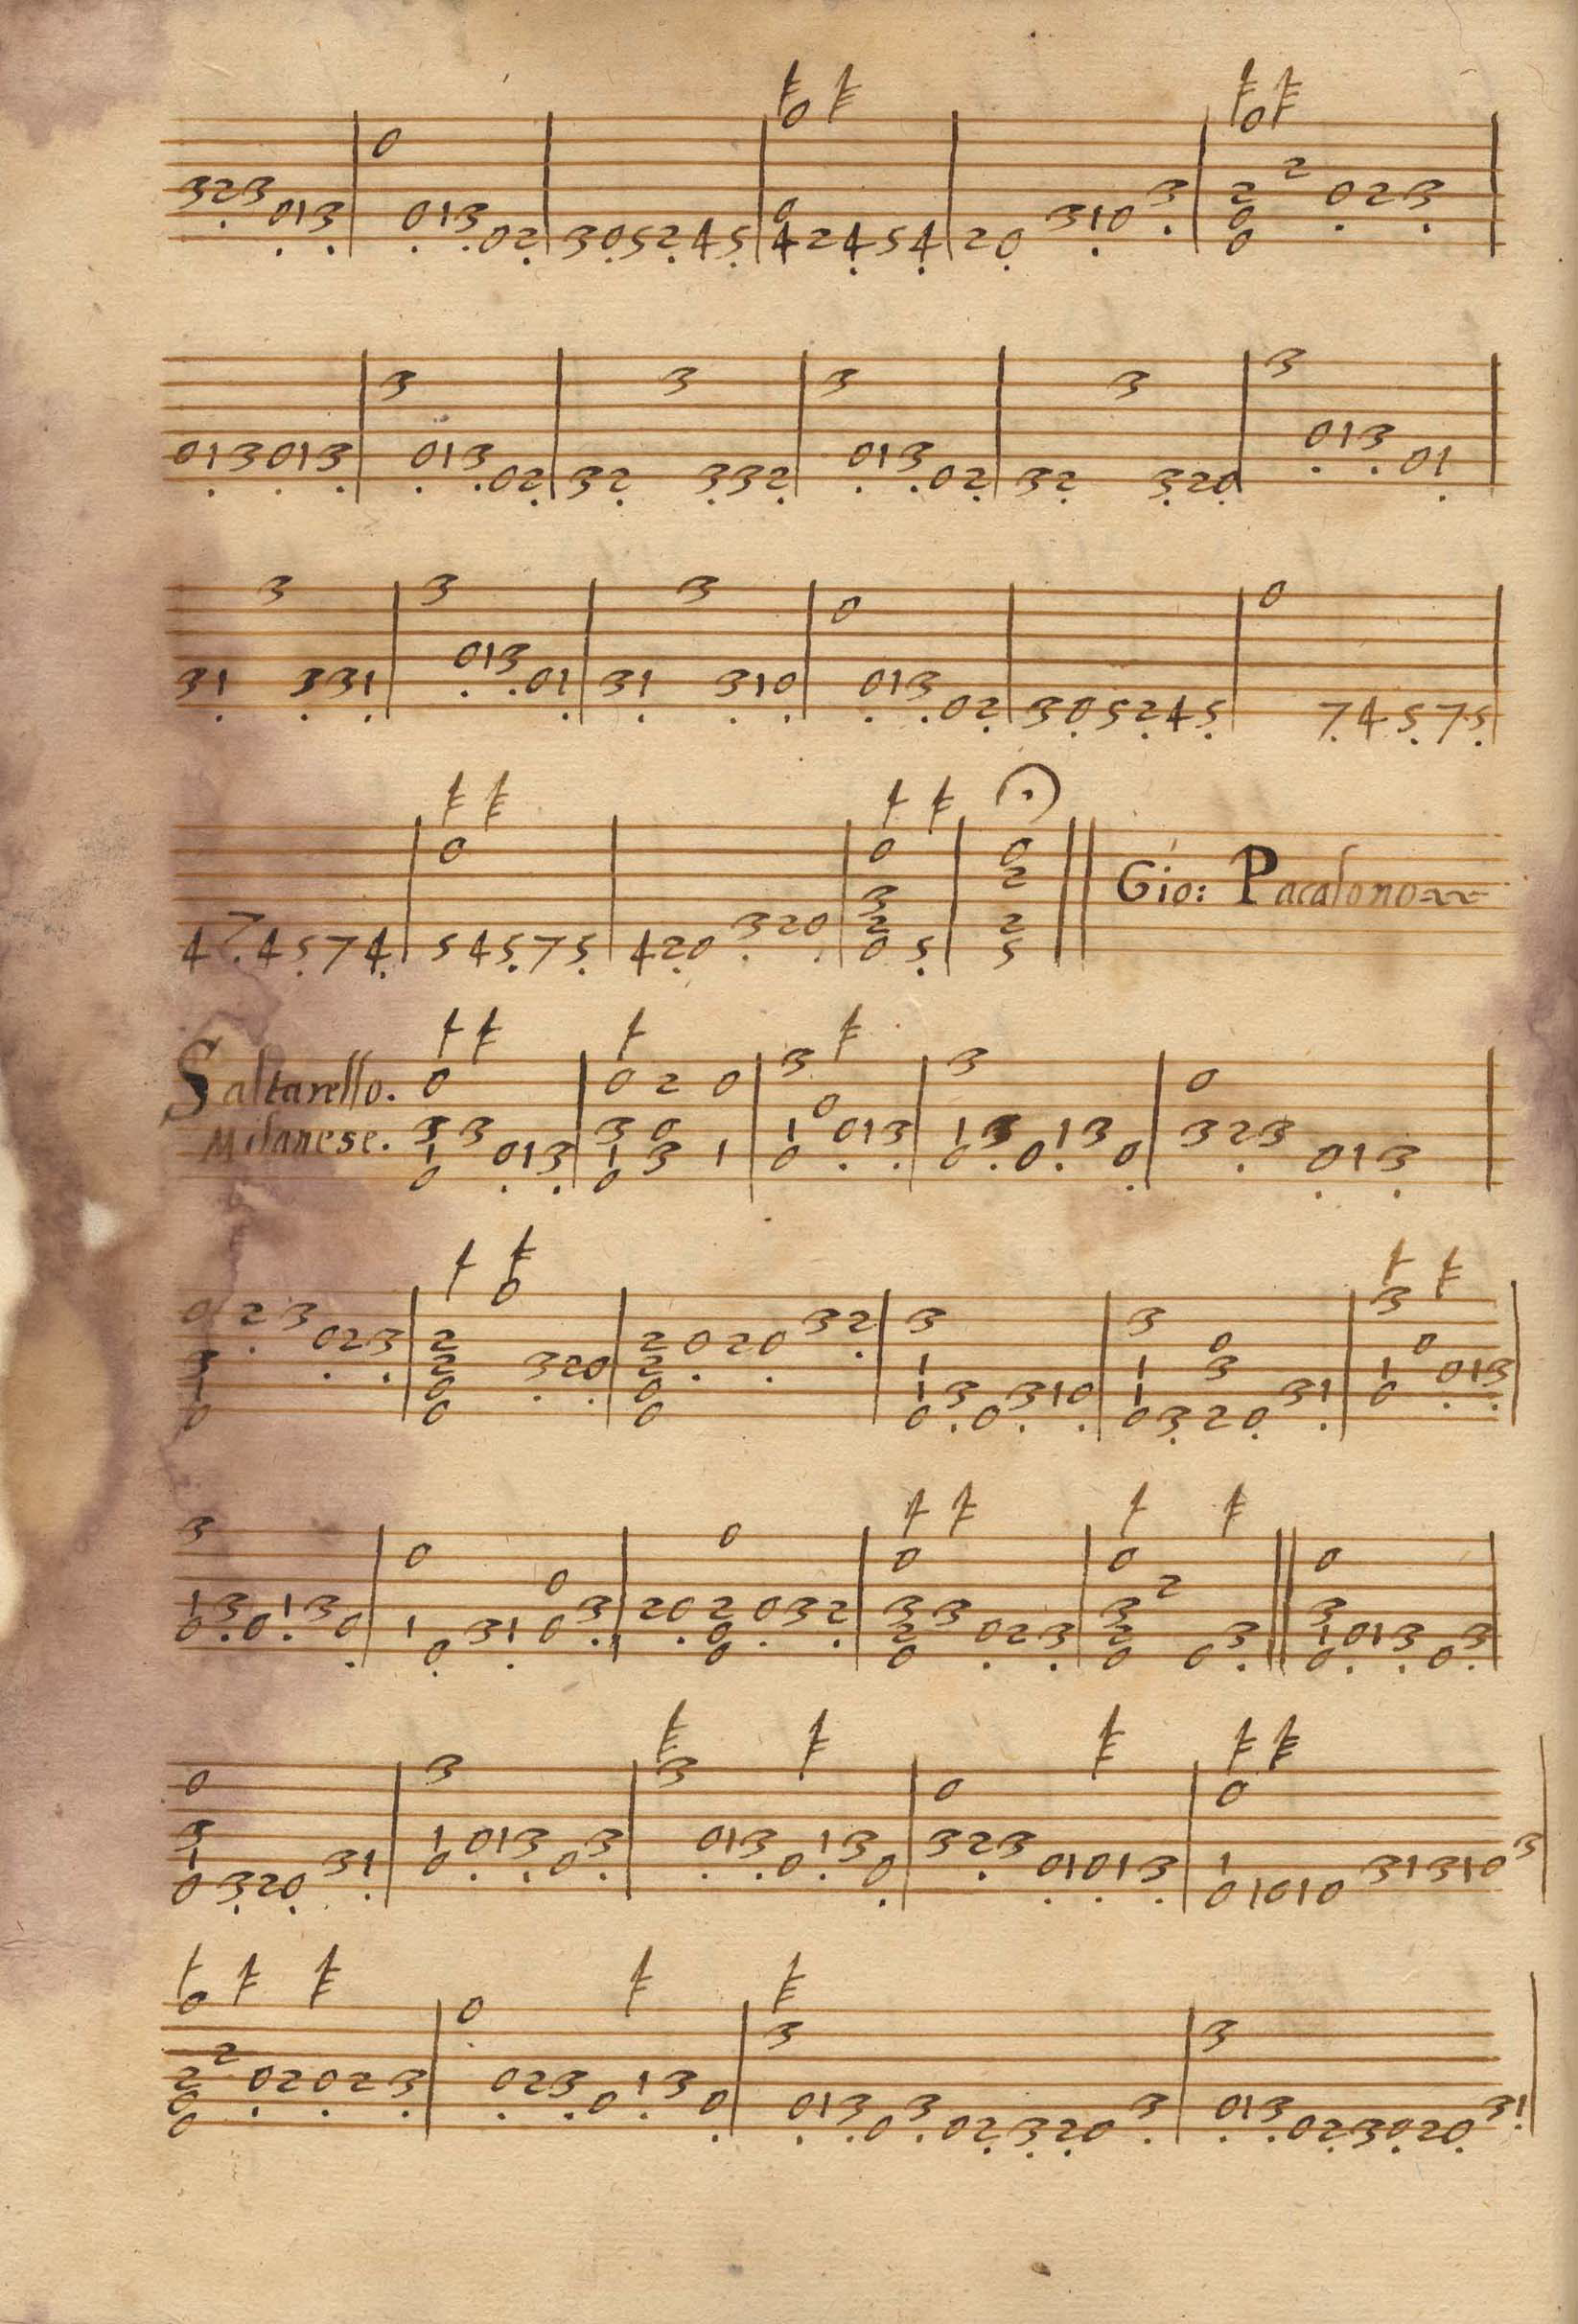 Gio: Pacalono
Saltarello.
Milanese.